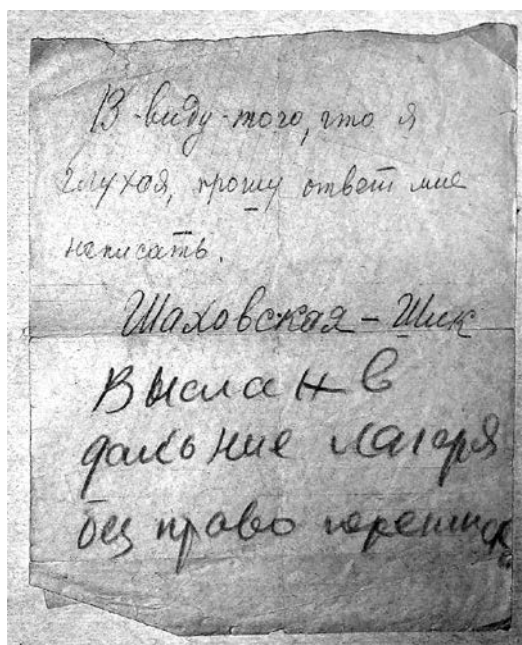 В-виду-того, что я
глухая, прошу ответ мне
написать.
Шаховская – Шик
Выслан в
дальние лагеря
без право переписки